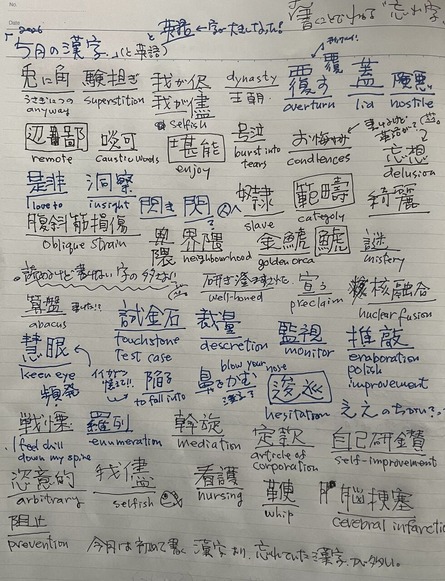 No.
Date
「書くことで忘れる「忘れ字」
2026 と英語←字が大きくなった!
「5月の漢字」(と英語)
兎に角 験担ぎ 我が儘 dynasty 覆す 覆 蓋 険悪
うさぎにつの superstition 我が儘 王朝 overturn lid hostile
anyway selfish
辺鄙 啖呵 堪能 号泣 お悔やみ 妄想
remote caustic words enjoy burst into tears condlences delusion
是非 洞察 閃き 閃 奴隷 範疇 綺麗
love to insight slave category
腹斜筋損傷 界隈 界隈 金鯱 鯱 謎
oblique strain neighbourhood golden orca mistery
読めるけど書けない字の多さ
研ぎ澄まされた 宣う 核融合
well-boned preclaim nuclear fusion
算盤 試金石 裁量 監視 推敲
abacus touchstone descretion monitor eraboration
Test case polish
improvement
慧眼 陥る 鼻をかむ 逡巡
keen eye to fall into blow your nose hesitation
頻発
戦慄 羅列 幹旋 定款 自己研鑽
I feel chill enumeration mediation article of self-improvement
down my spine corporation
恣意的 我儘 看護 鞭 脳梗塞
arbitrary selfish nursing whip cerebral infarction
阻止
prevention 今月は初めて書く漢字より、忘れていた漢字が多い。